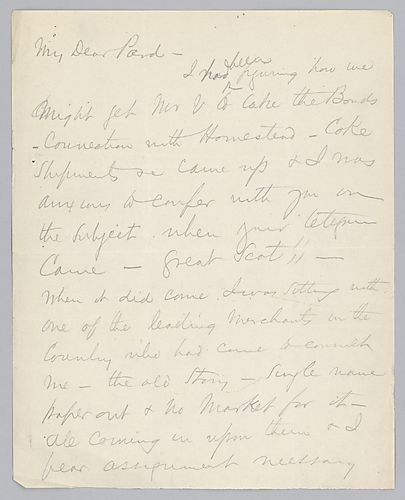 My Dear Pard —
I had been figuring how we
might get Mr V to take the Bonds
- Connection with Homestead - Coke
Shipments &c came up & I was
anxious to confer with you on
the subject. when your telegram
Came — Great Scot!! —
When it did come. I was sitting with
one of the leading Merchants in the
Country who had come to consult
me — the old Story — Single name
paper out & no Market for it —
ale coming in upon them & I
fear assignment necessary